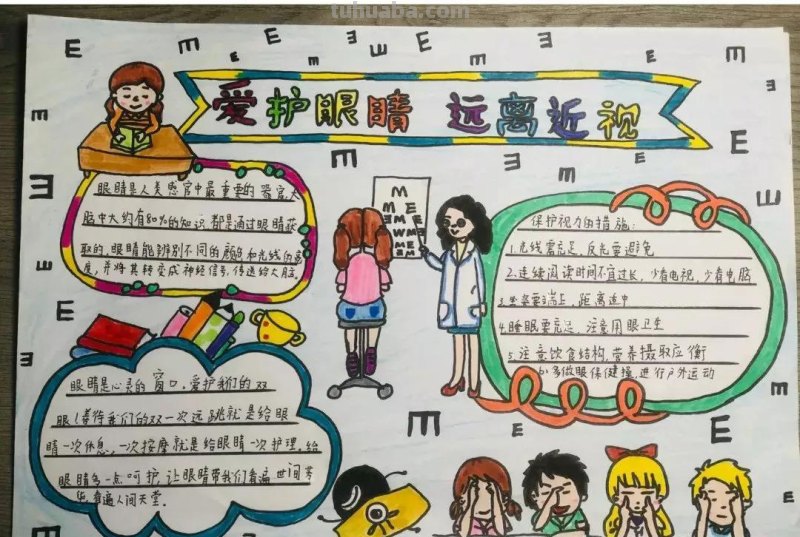 tuhuaba.com
爱护眼睛 远离近视
眼睛是人类感官中最重要的器官,大
脑中大约有80%的知识都是通过眼睛获
取的,眼睛能辨别不同的颜色和光线的亮
度,并将其转变成神经信号,传送给大脑。
M
M E
EMM
保护视力的措施:
1.光线需充足,反光要避免
2.连续阅读时间不宜过长,少看电视,少看电脑
3.坐姿要端正,距离适中
4.睡眠要充足,注意用眼卫生
5.注意饮食结构,营养摄取应衡
6.多做眼保健操,进行户外运动
眼睛是心灵的窗口,爱护我们的双
眼!善待我们的双一次远眺就是给眼
睛一次休息,一次按摩就是给眼睛一次护理,给
眼睛多一点呵护,让眼睛带我们看遍世间芳
华,看遍人间天堂。